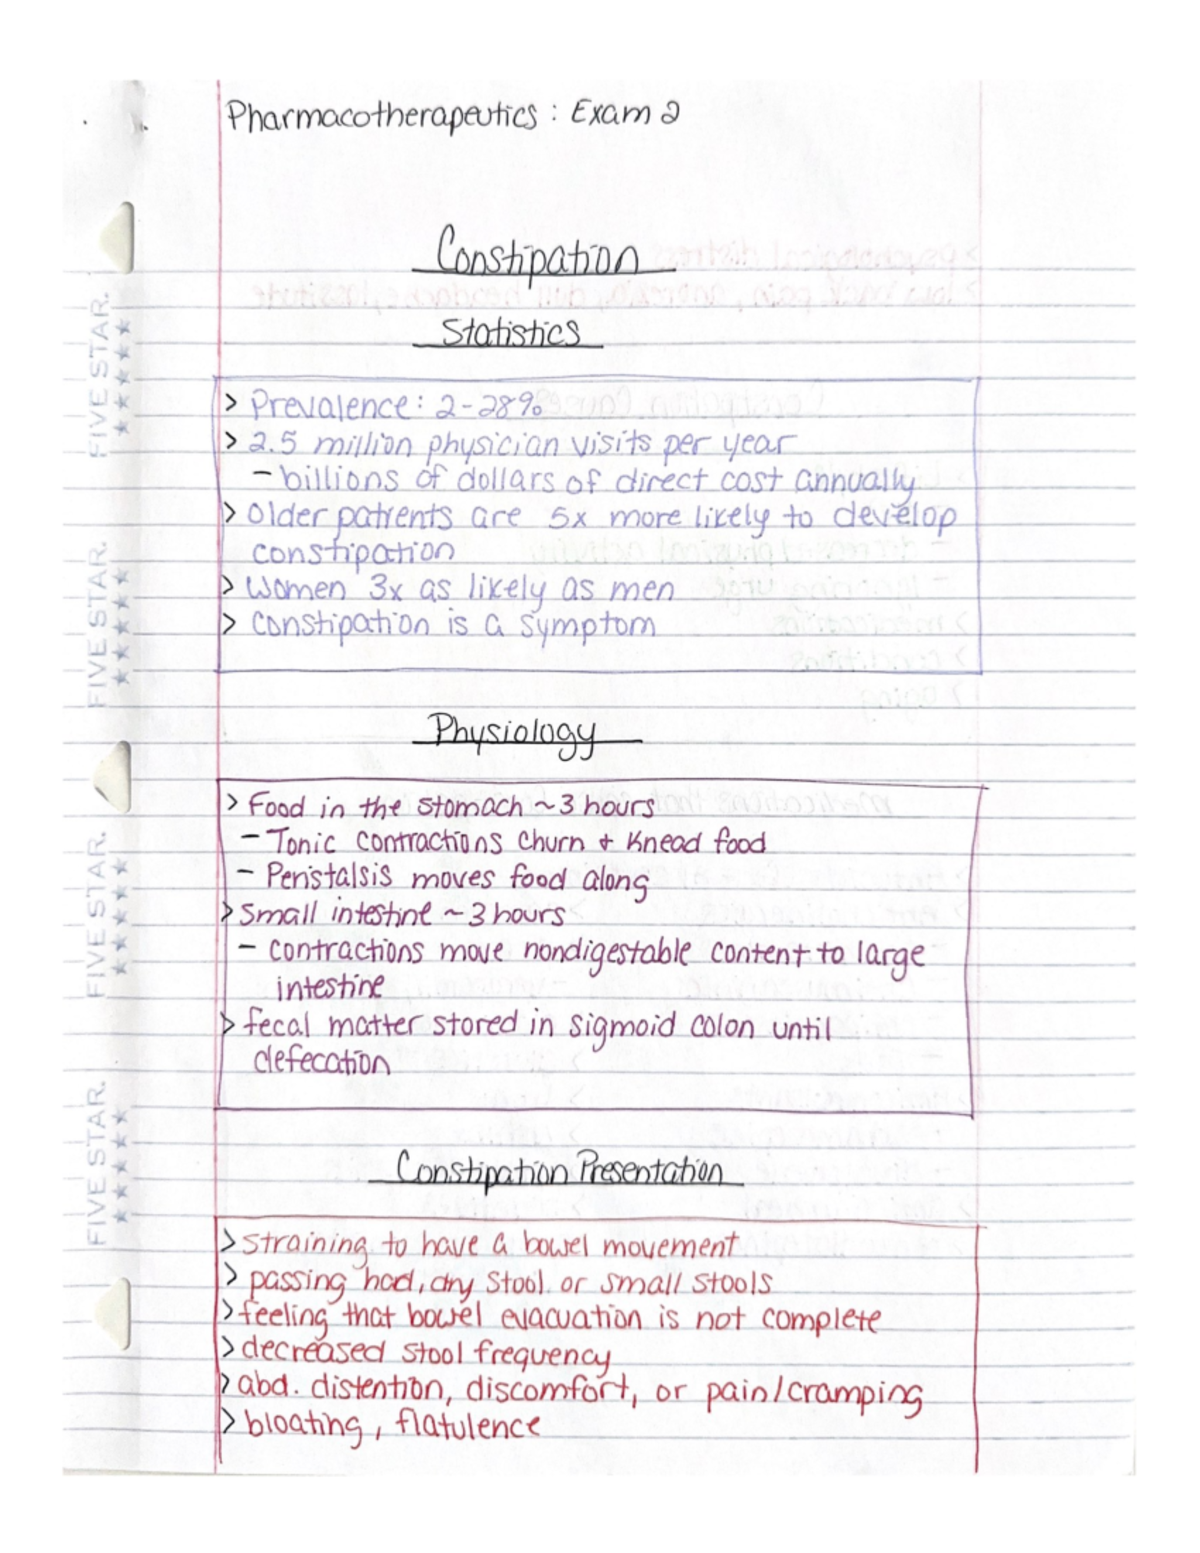 Pharmacotherapeutics : Exam 2
Constipation
Statistics
> Prevalence: 2-28%
> 2.5 million physician visits per year
- billions of dollars of direct cost annually
> Older patients are 5x more likely to develop
constipation
> Women 3x as likely as men
> Constipation is a symptom
Physiology
> Food in the stomach ~3 hours
- Tonic contractions churn + knead food
- Peristalsis moves food along
> Small intestine ~3 hours
- contractions move nondigestable content to large
intestine
> fecal matter stored in sigmoid colon until
defecation
Constipation Presentation
> straining to have a bowel movement
> passing hard, dry stool or small stools
> feeling that bowel evacuation is not complete
> decreased stool frequency
> abd. distention, discomfort, or pain/cramping
> bloating, flatulence
FIVE STAR.
FIVE STAR.
FIVE STAR.
FIVE STAR.